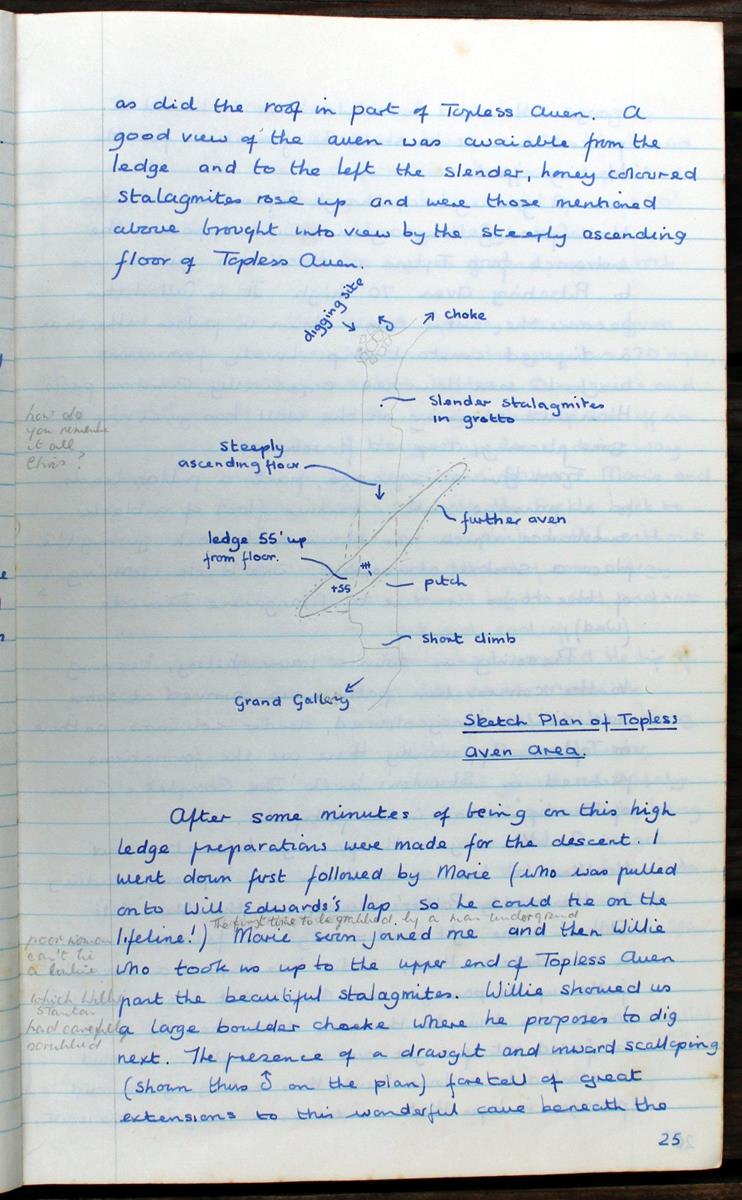 as did the roof in part of Topless Aven. A
good view of the aven was avaiable from the
ledge and to the left the slender, honey coloured
stalagmites rose up and were those mentioned
above brought into view by the steeply ascending
floor of Topless Aven.
digging site
choke
Slender stalagmites
in grotto
how do
you remember
it all
Chris?
Steeply
ascending floor
further aven
ledge 55' up
from floor.
+55
pitch
short climb
Grand Gallery
Sketch Plan of Topless
Aven Area.
After some minutes of being on this high
ledge preparations were made for the descent. I
went down first followed by Marie (who was pulled
onto Will Edwards's lap so he could tie on the
The first time to be grabbed by a man underground
lifeline!) Marie soon joined me and then Willie
poor woman
can't tie
a bowline
who took us up to the upper end of Topless Aven
past the beautiful stalagmites. Willie showed us
which Willy
Stanton
had carefully
scrubbed
a large boulder choke where he proposes to dig
next. The presence of a draught and inward scalloping
(shown thus on the plan) foretell of great
extensions to this wonderful cave beneath the
25